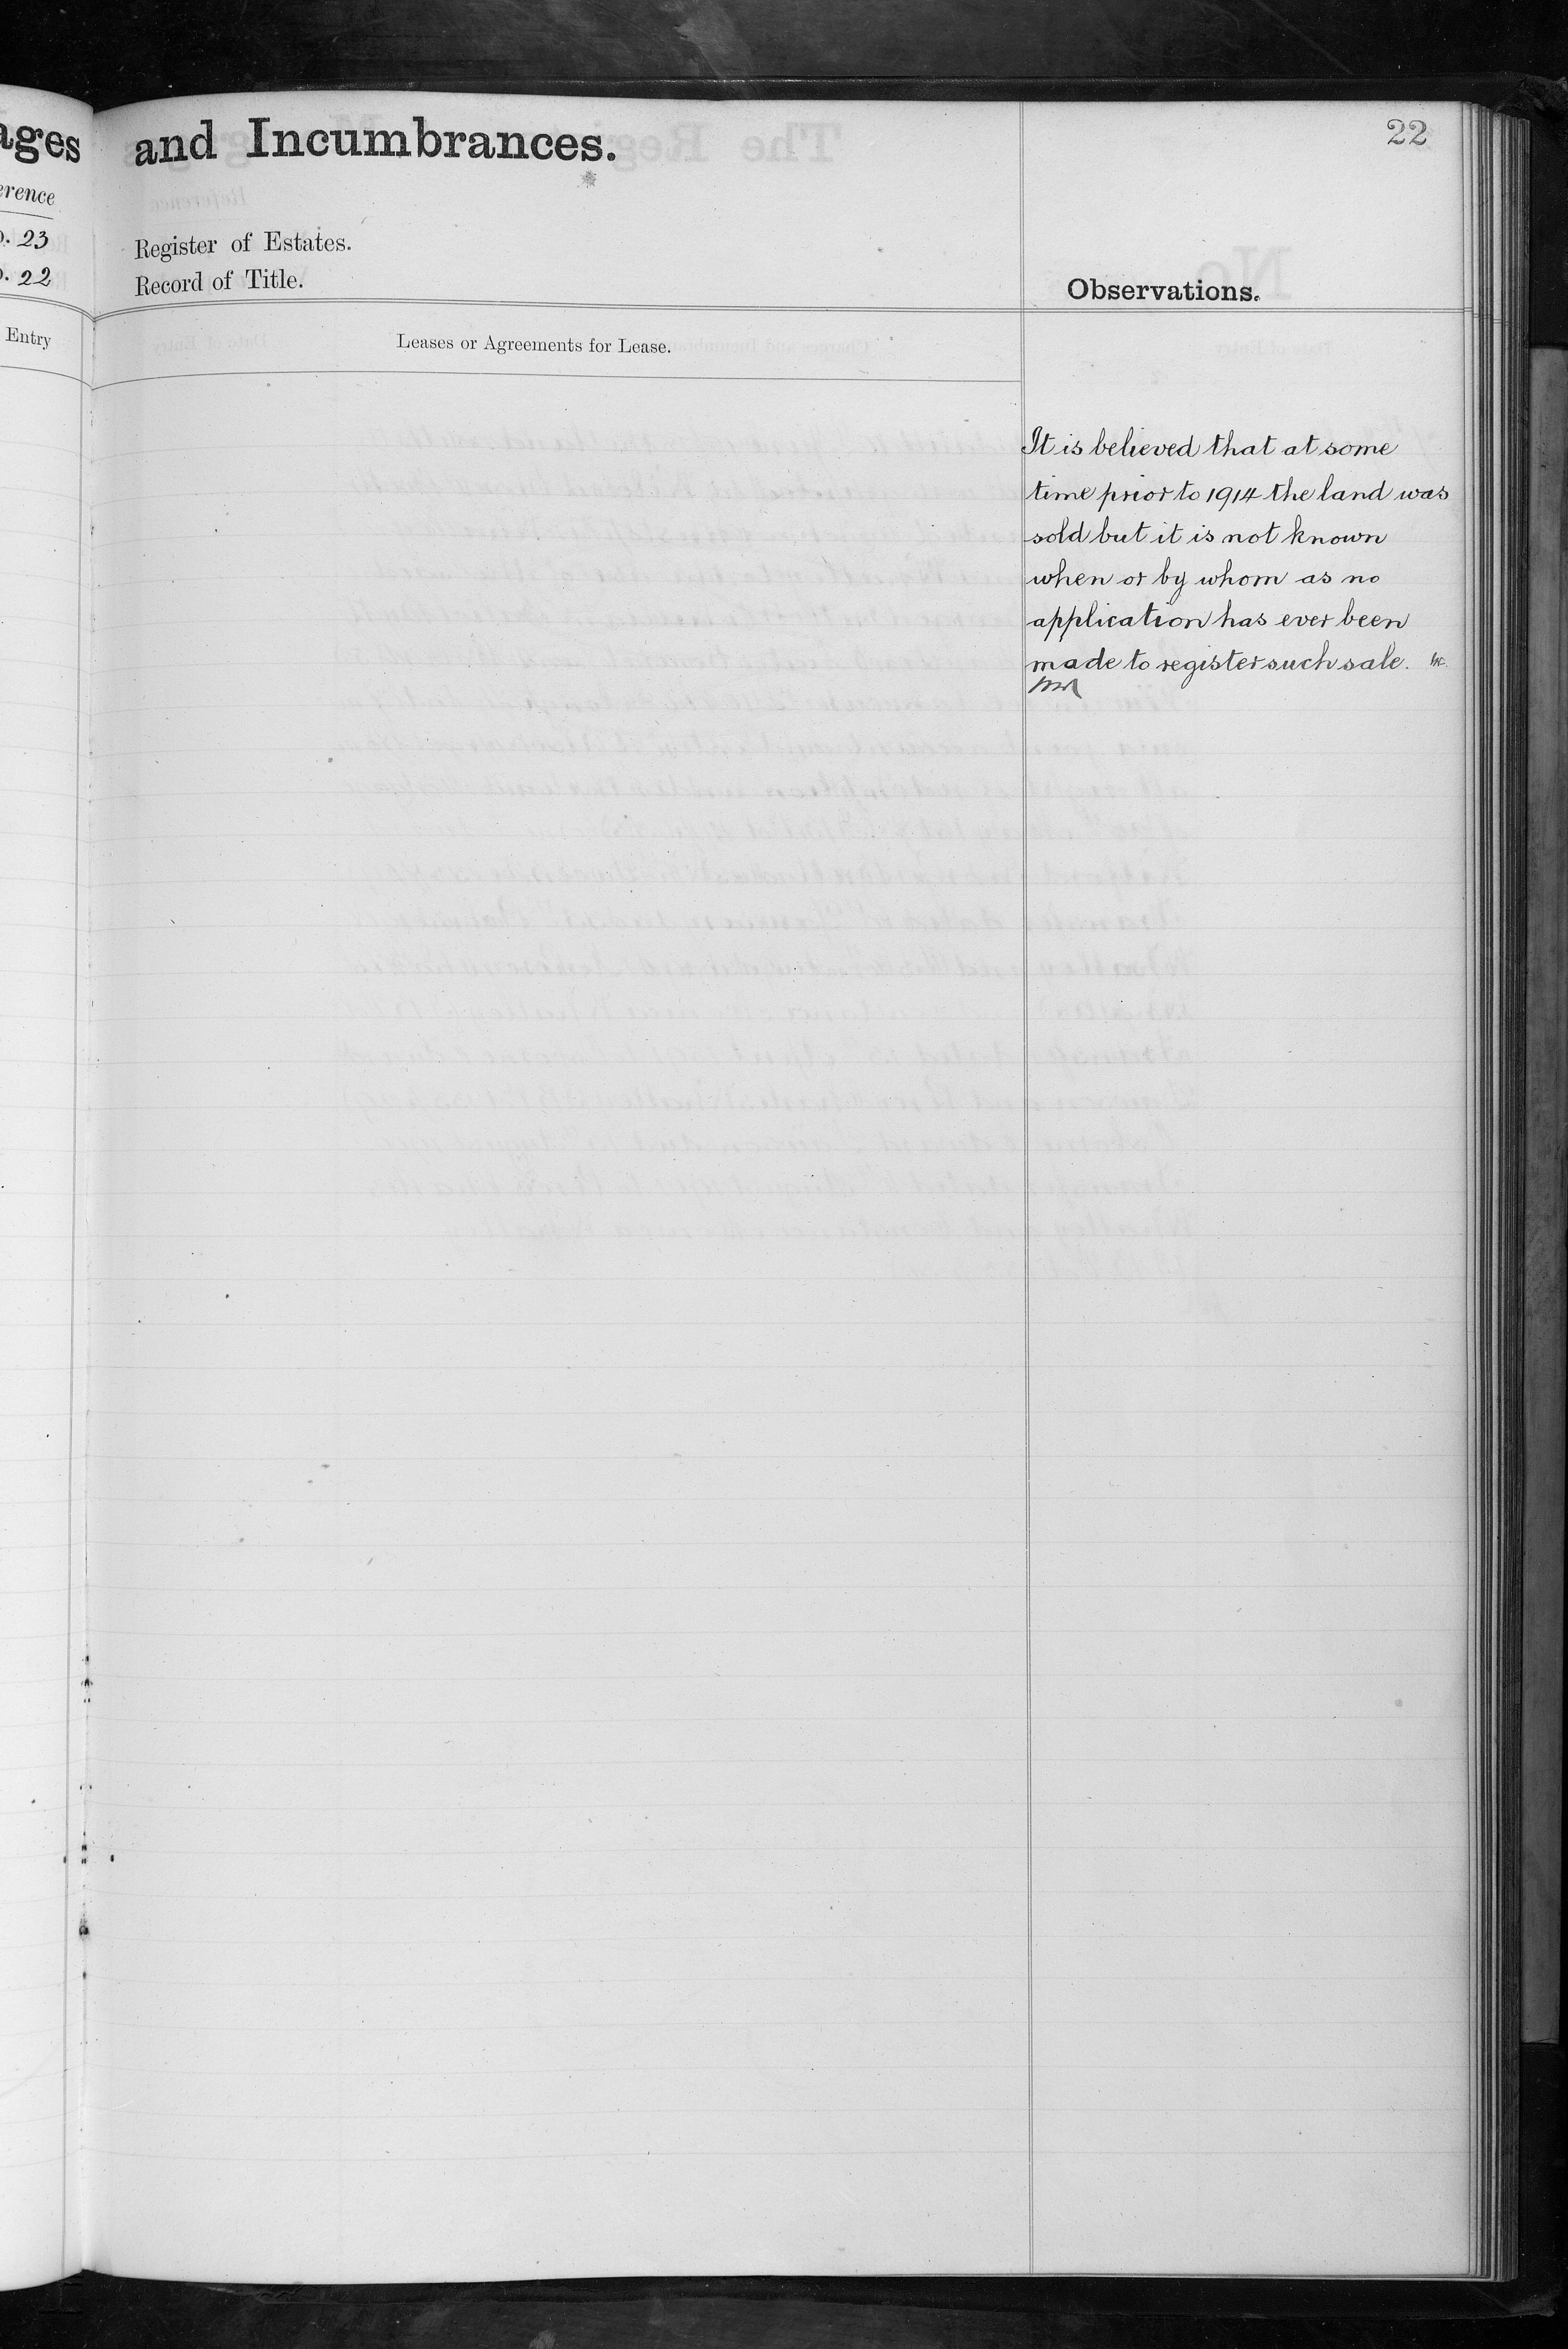 ages
and Incumbrances.
22
erence
. 23
Register of Estates.
. 22
Record of Title.
Observations.
Entry
Leases or Agreements for Lease.
It is believed that at some
time prior to 1914 the land was
sold but it is not known
when or by whom as no
application has ever been
made to register such sale.